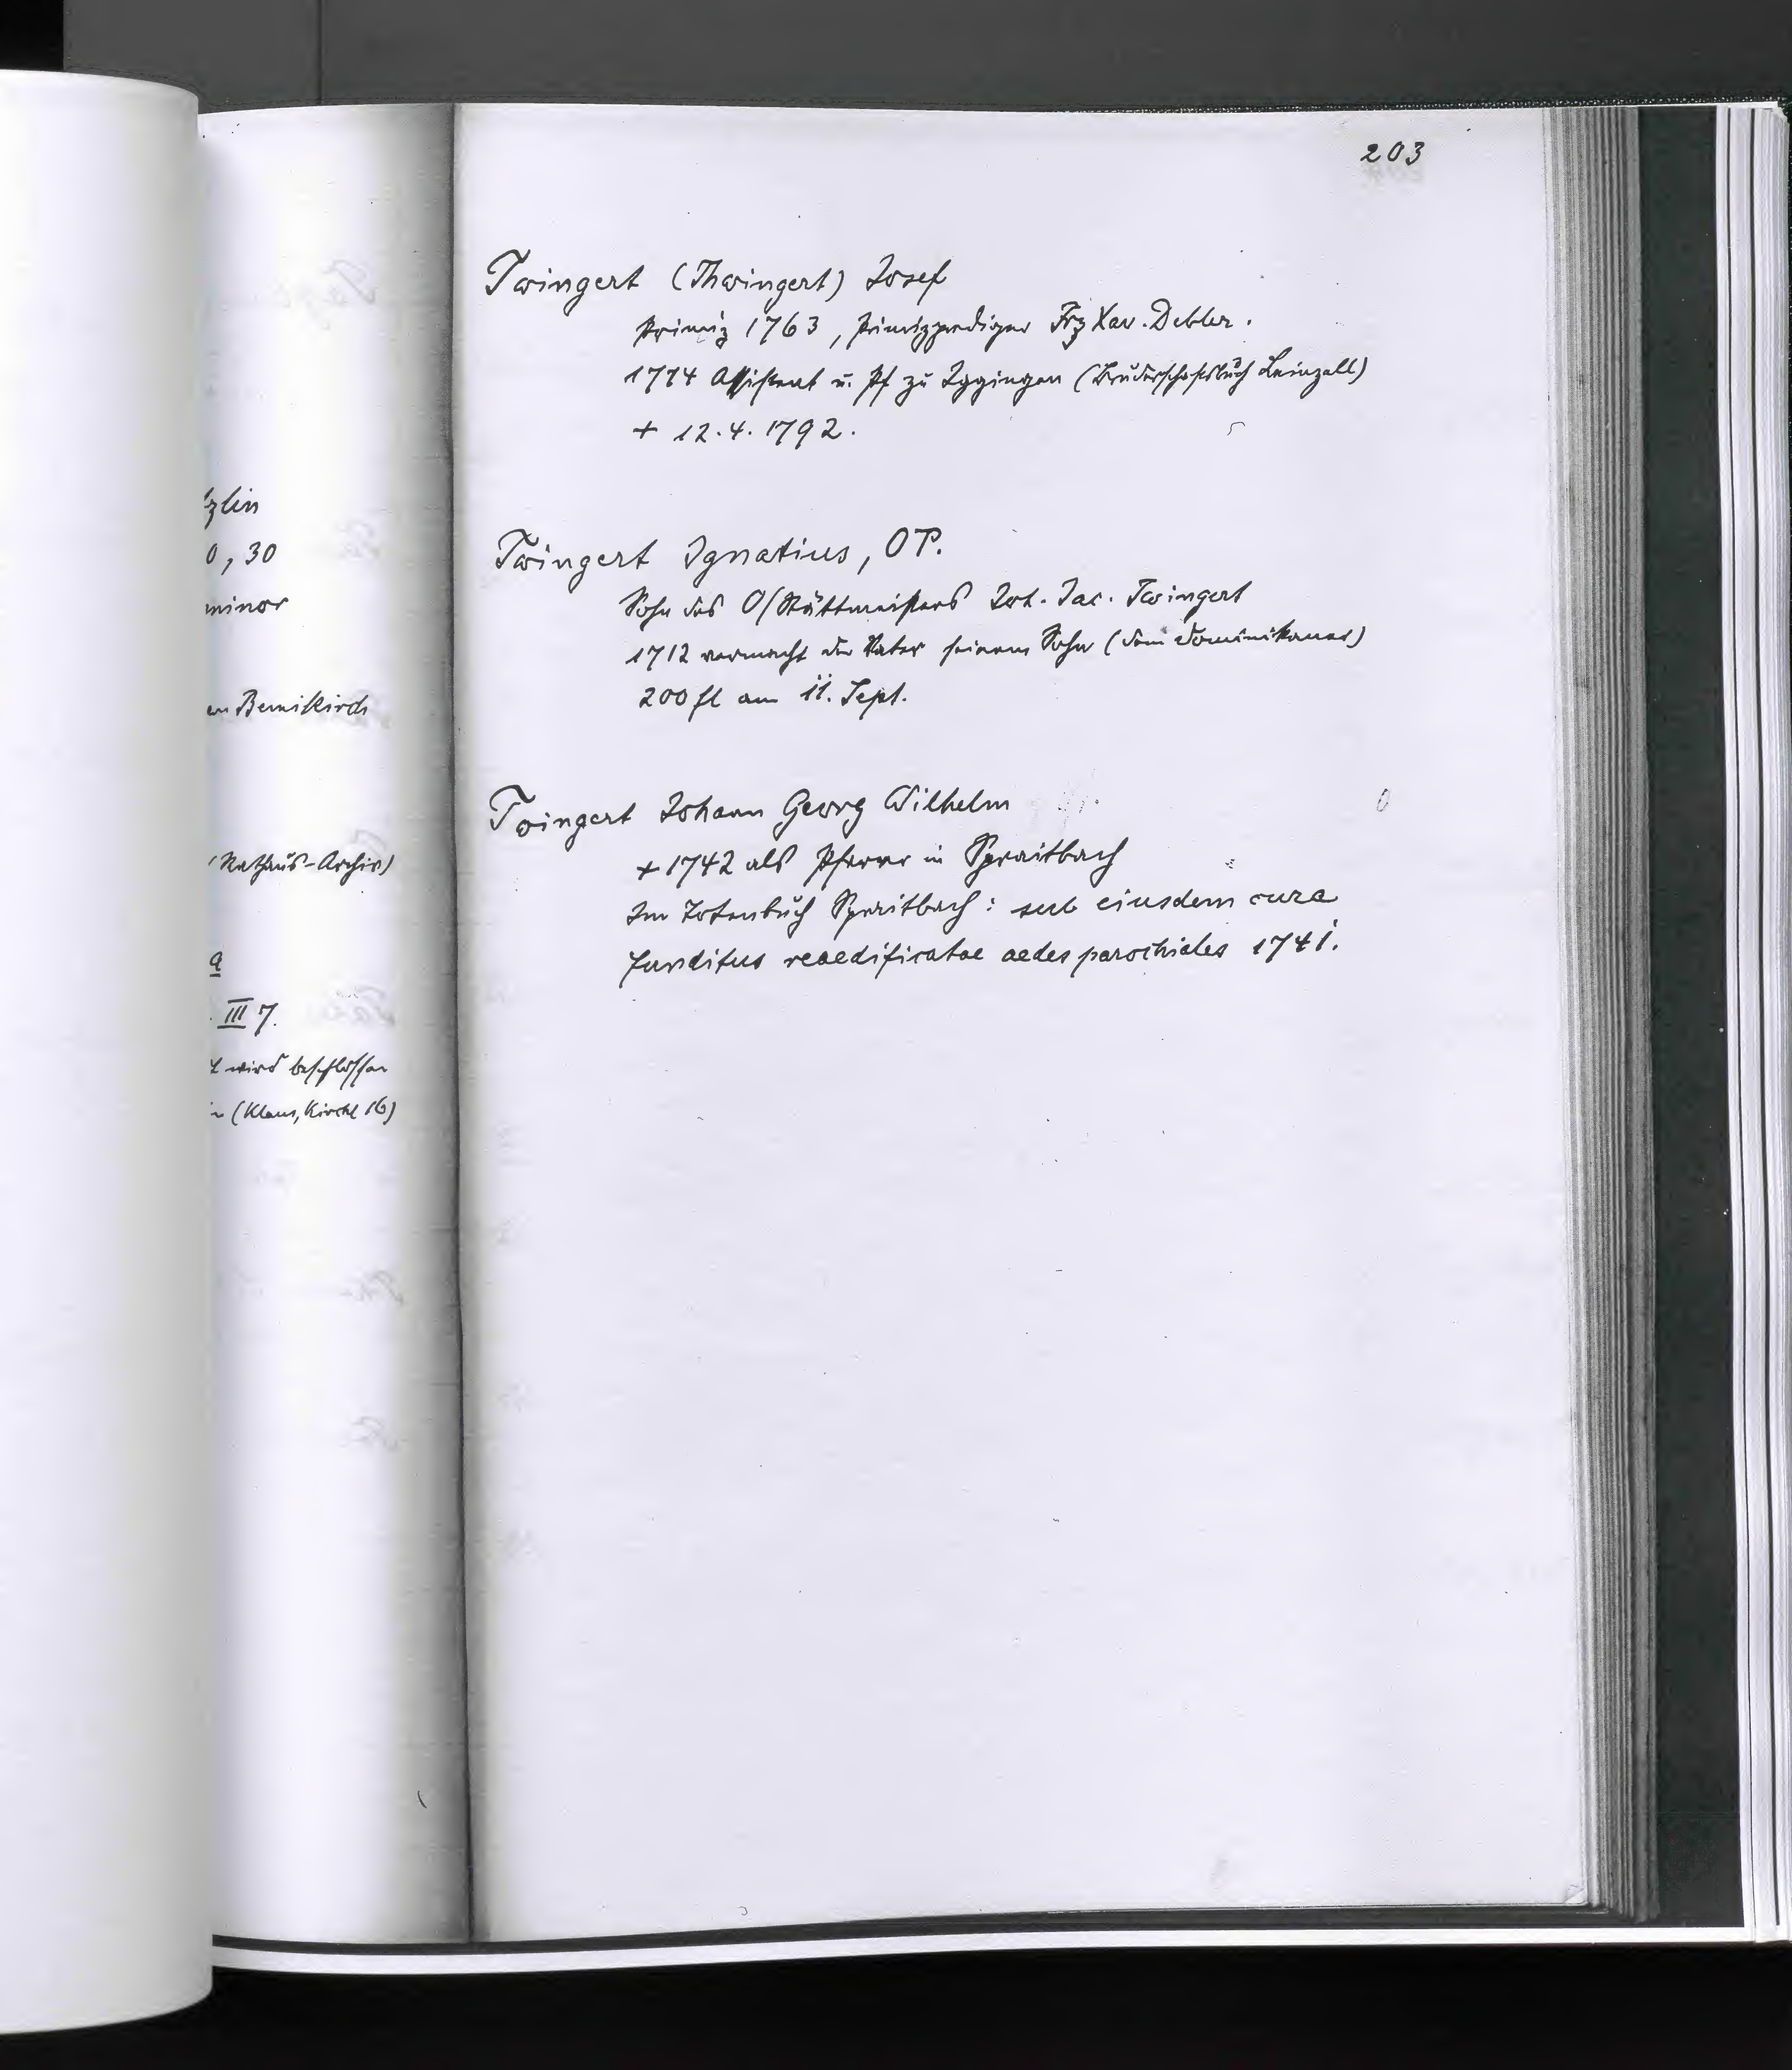 zlin
0, 30
minor
Bernikirch
Rathaus-Archiv)
a
III 7.
wird beschlossen
(Klaus, Kirchl 16)
203
Twingert (Thwingert) Josef
Primiz 1763, Primizprediger Frz Xav. Debler.
1774 Assistent u. Pf zu Iggingen (Bruderschaftsbuch Leinzell)
+ 12.4.1792.
Twingert Ignatius, OP.
Sohn des O/Stättmeisters Joh. Jac. Twingert
1712 vermacht der Vater seinem Sohn (dem Dominikaner)
200 fl am 11. Sept.
Twingert Johann Georg Wilhelm
+ 1742 als Pfarrer in Spraitbach
Im Totenbuch Spraitbach: sub eiusdem cura
funditus reaedificatae aedes parochiales 1741.